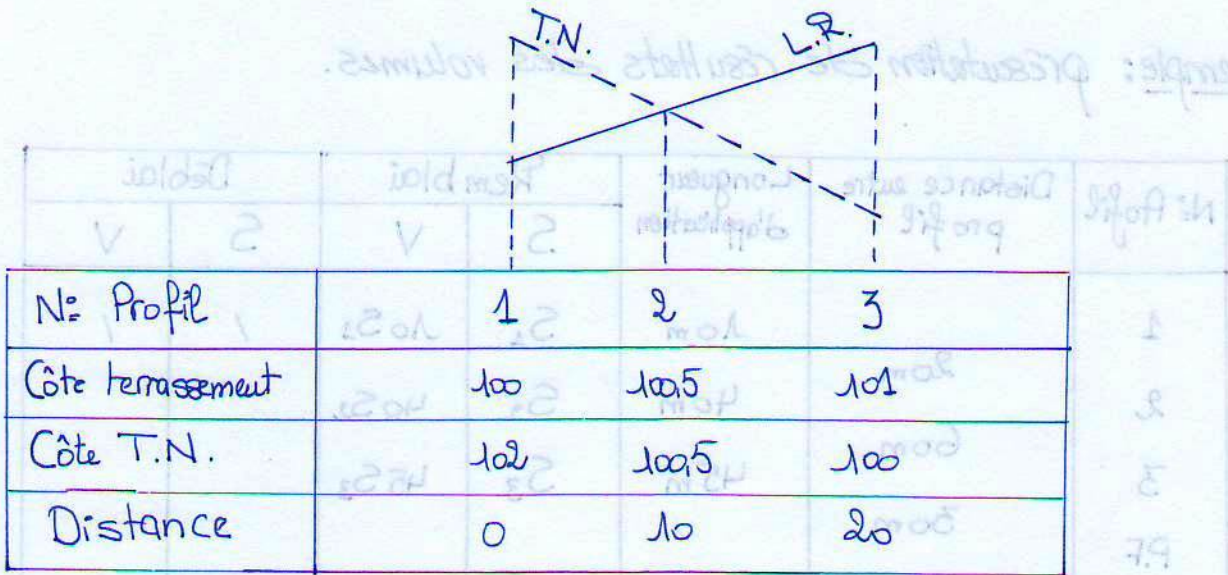 T.N. L.R.
N: Profil 1 2 3
Côte terrassement 100 100,5 101
Côte T.N. 102 100,5 100
Distance 0 10 20